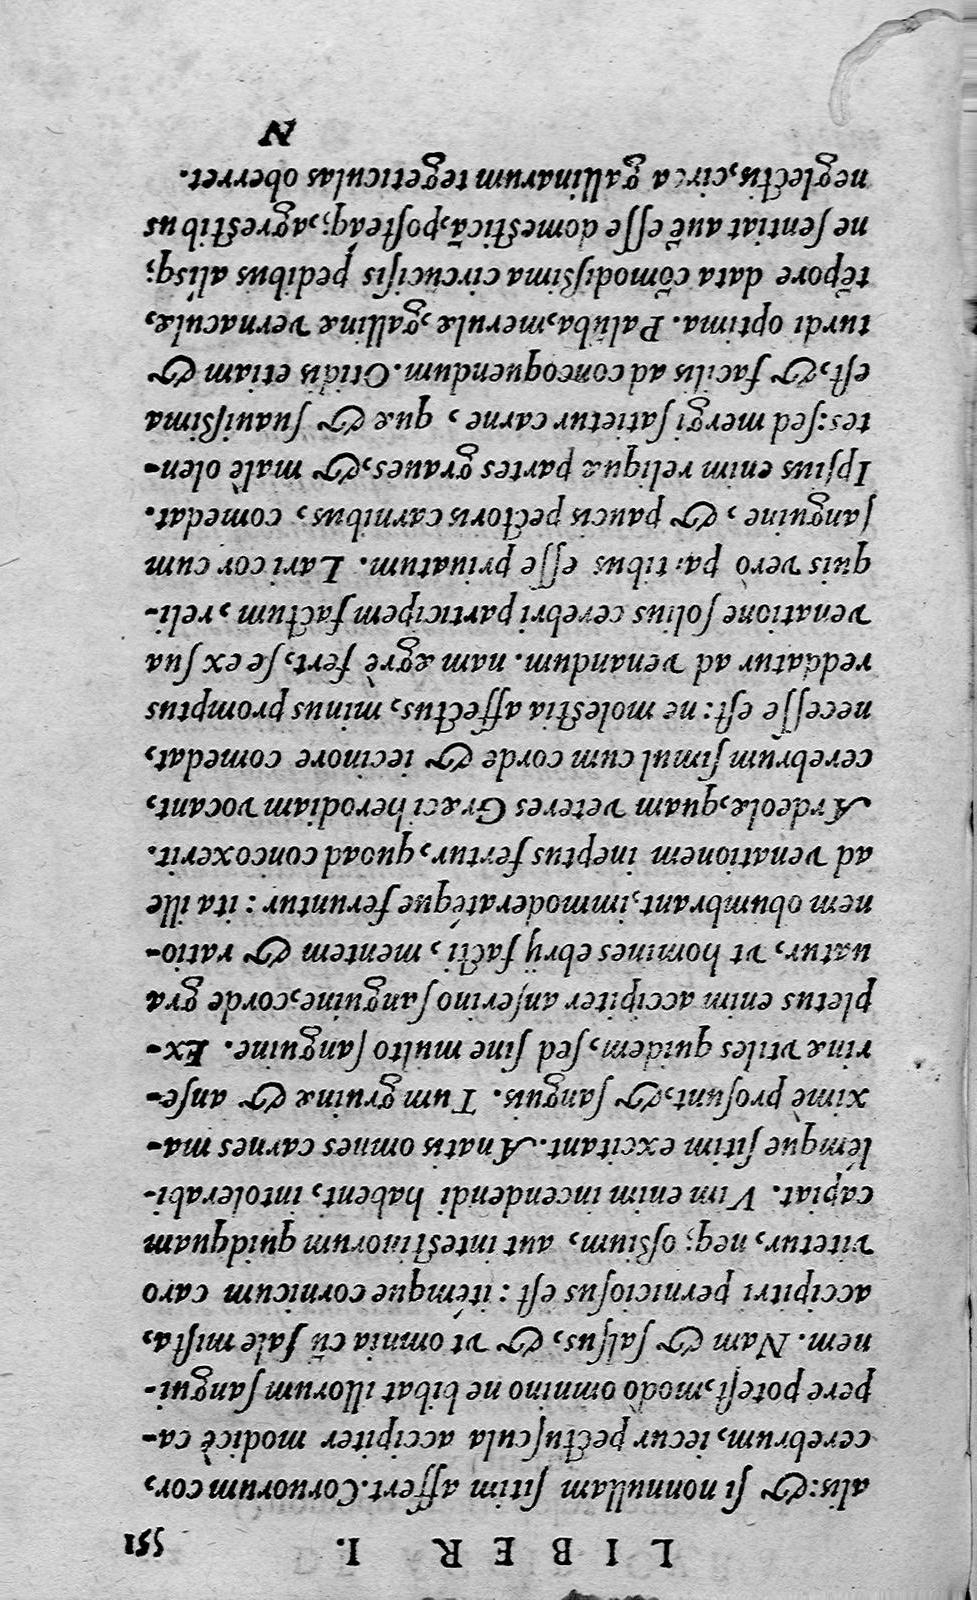 LIBER I. 551
alis: & si nonnullam sitim affert. Coruorum cor,
cerebrum, iecur, pectuscula accipiter modicè ca-
pere potest, modò omnino ne bibat illorum sangui-
nem. Nam & salsus, & vt omnia cū sale mista,
accipitri perniciosus est: itémque cornicum caro
vitetur, neq; oßium, aut intestinorum quidquam
capiat. Vim enim incendendi habent, intolerabi-
lémque sitim excitant. Anatis omnes carnes ma-
ximè prosunt, & sanguis. Tum gruinæ & anse-
rinæ vtiles quidem, sed sine multo sanguine. Ex-
pletus enim accipiter anserino sanguine, corde gra
uatur, vt homines ebrij facti, mentem & ratio-
nem obumbrant, immoderatéque feruntur: ita ille
ad venationem ineptus fertur, quoad concoxerit.
Ardeolæ, quam veteres Græci herodiam vocant,
cerebrum simul cum corde & iecinore comedat,
necesse est: ne molestia affectus, minus promptus
reddatur ad venandum. nam ægrè fert, se ex sua
venatione solius cerebri participem factum, reli-
quis verò partibus esse priuatum. Lari cor cum
sanguine, & paucis pectoris carnibus, comedat.
Ipsius enim reliquæ partes graues, & malè olen-
tes: sed mergi satietur carne, quæ & suauißima
est, & facilis ad concoquendum. Otidis etiam &
turdi optima. Palūba, merulæ, gallinæ vernaculæ,
tēpore data cōmodißima circūcisis pedibus alisq;
ne sentiat auē esse domesticā, posteaq;, agrestibus
neglectis, circa gallinarum tegeticulas oberret.
N